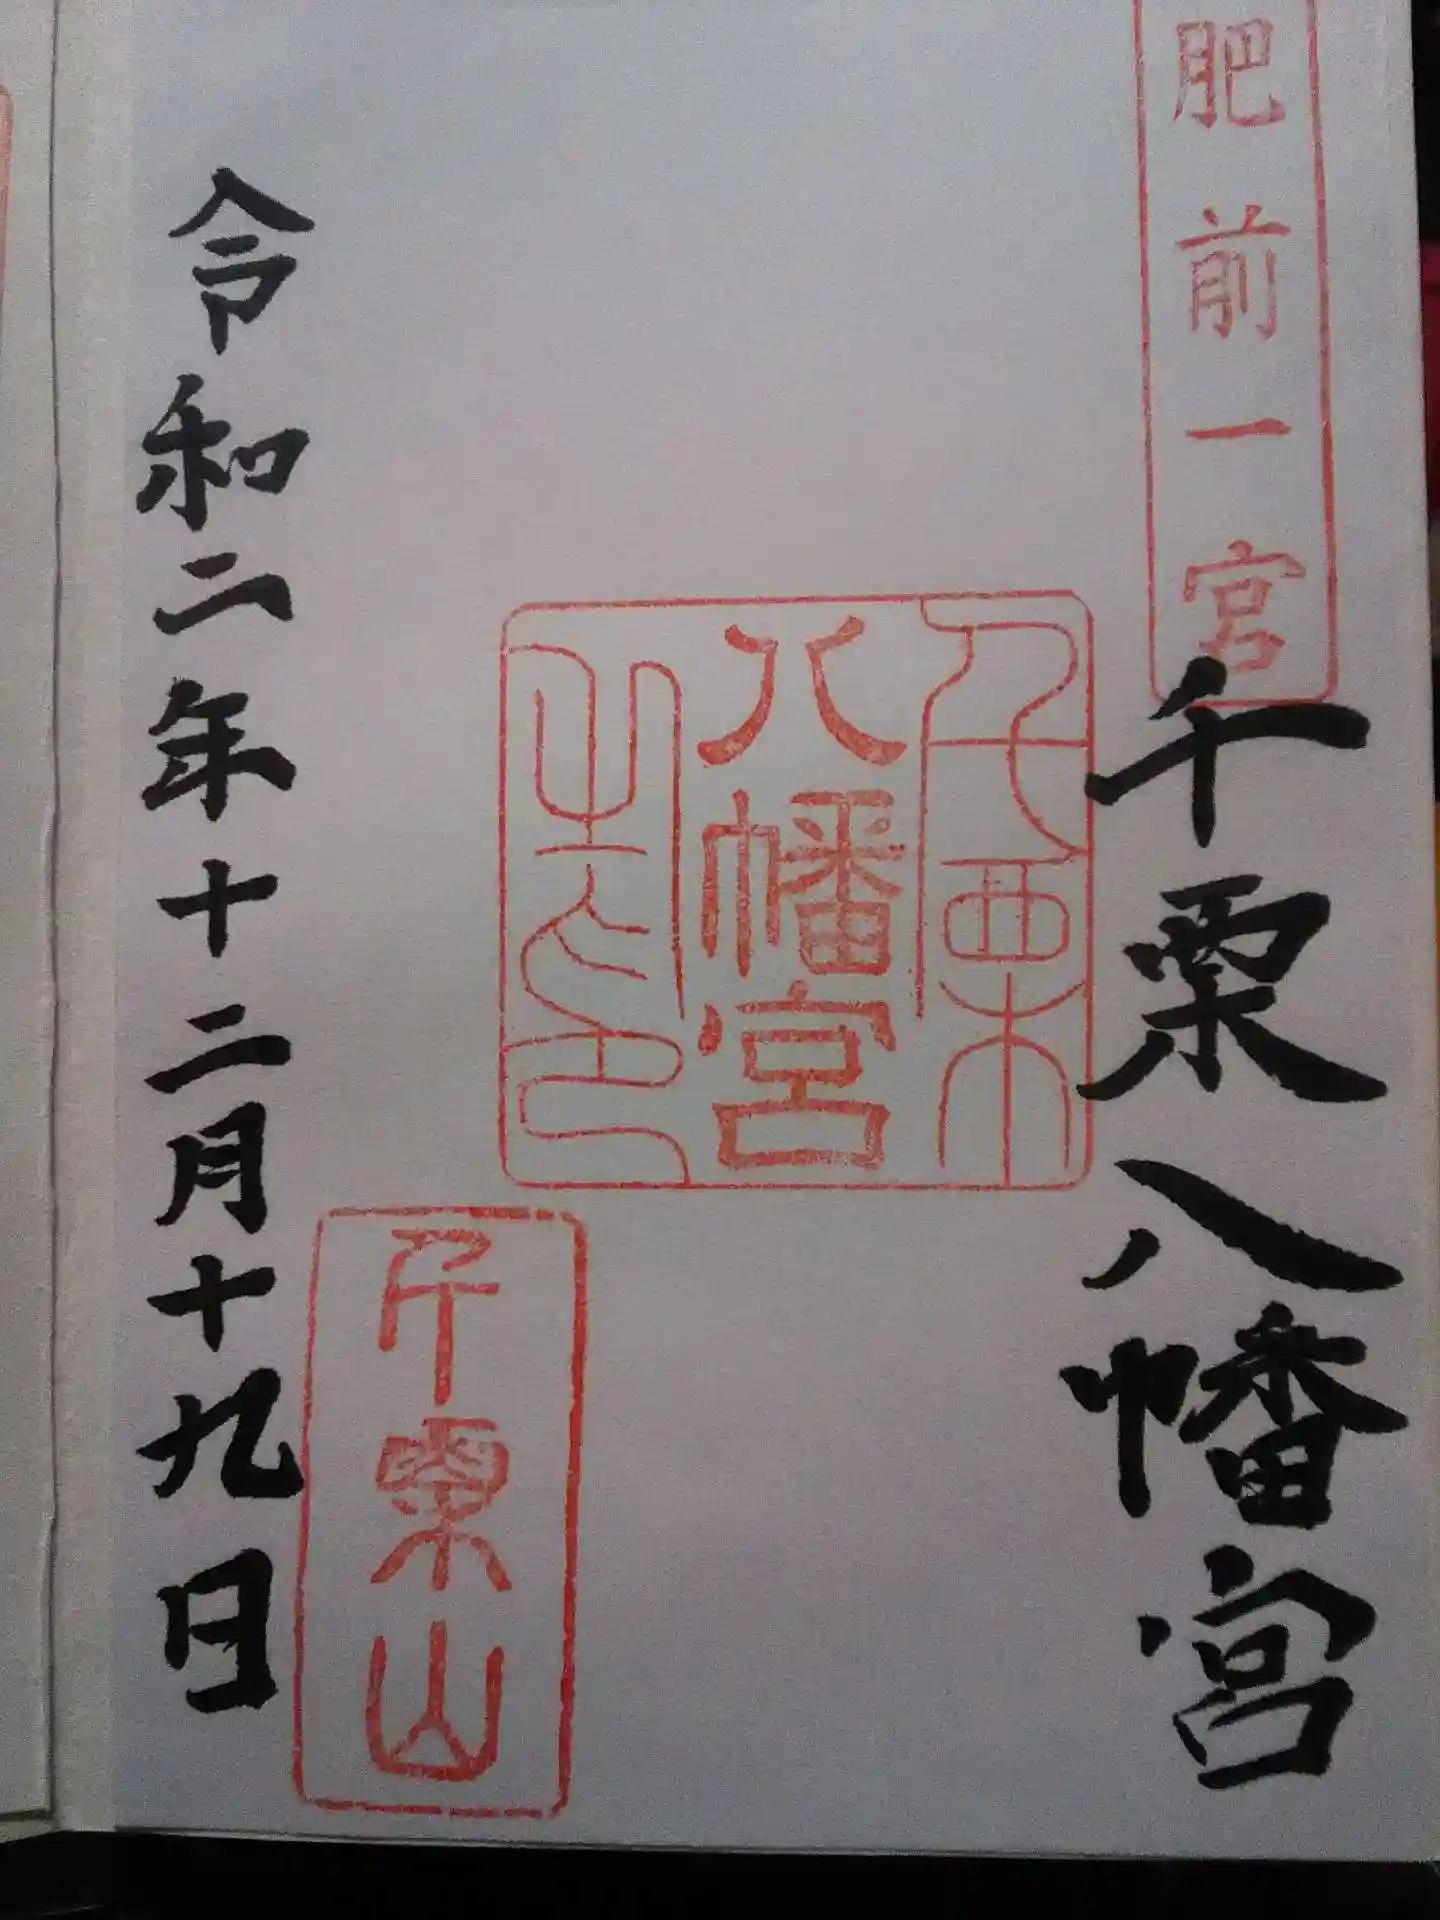 肥前一宮
千栗八幡宮
千栗
八幡宮
之印
千栗山
令和二年十二月十九日